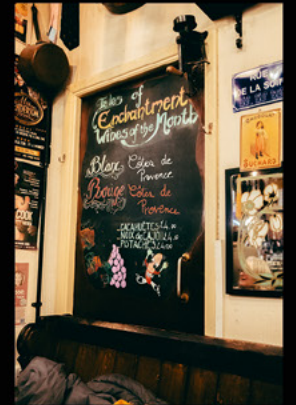 Tales of
Enchantment
Wines of the Month
Blanc Côtes de
Provence
Rouge Côtes de
Provence
CACAHUÈTES £4.
NOIX de CAJOU £4.
POTACHES £4.
RUE
DE LA SOIF
SUCHARD
COOK